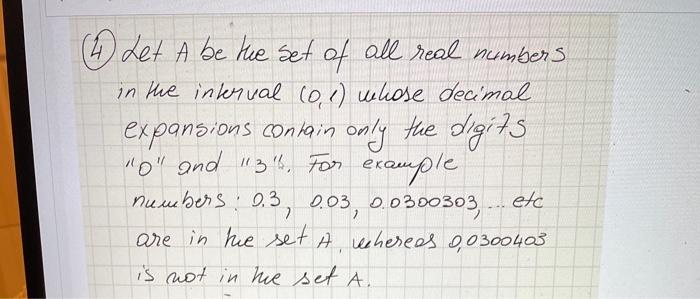 ④ Let A be the set of all real numbers
in the interval (0,1) whose decimal
expansions contain only the digits
"0" and "3". For example
numbers: 0.3, 0.03, 0.0300303, ... etc
are in the set A, whereas 0,0300403
is not in the set A.